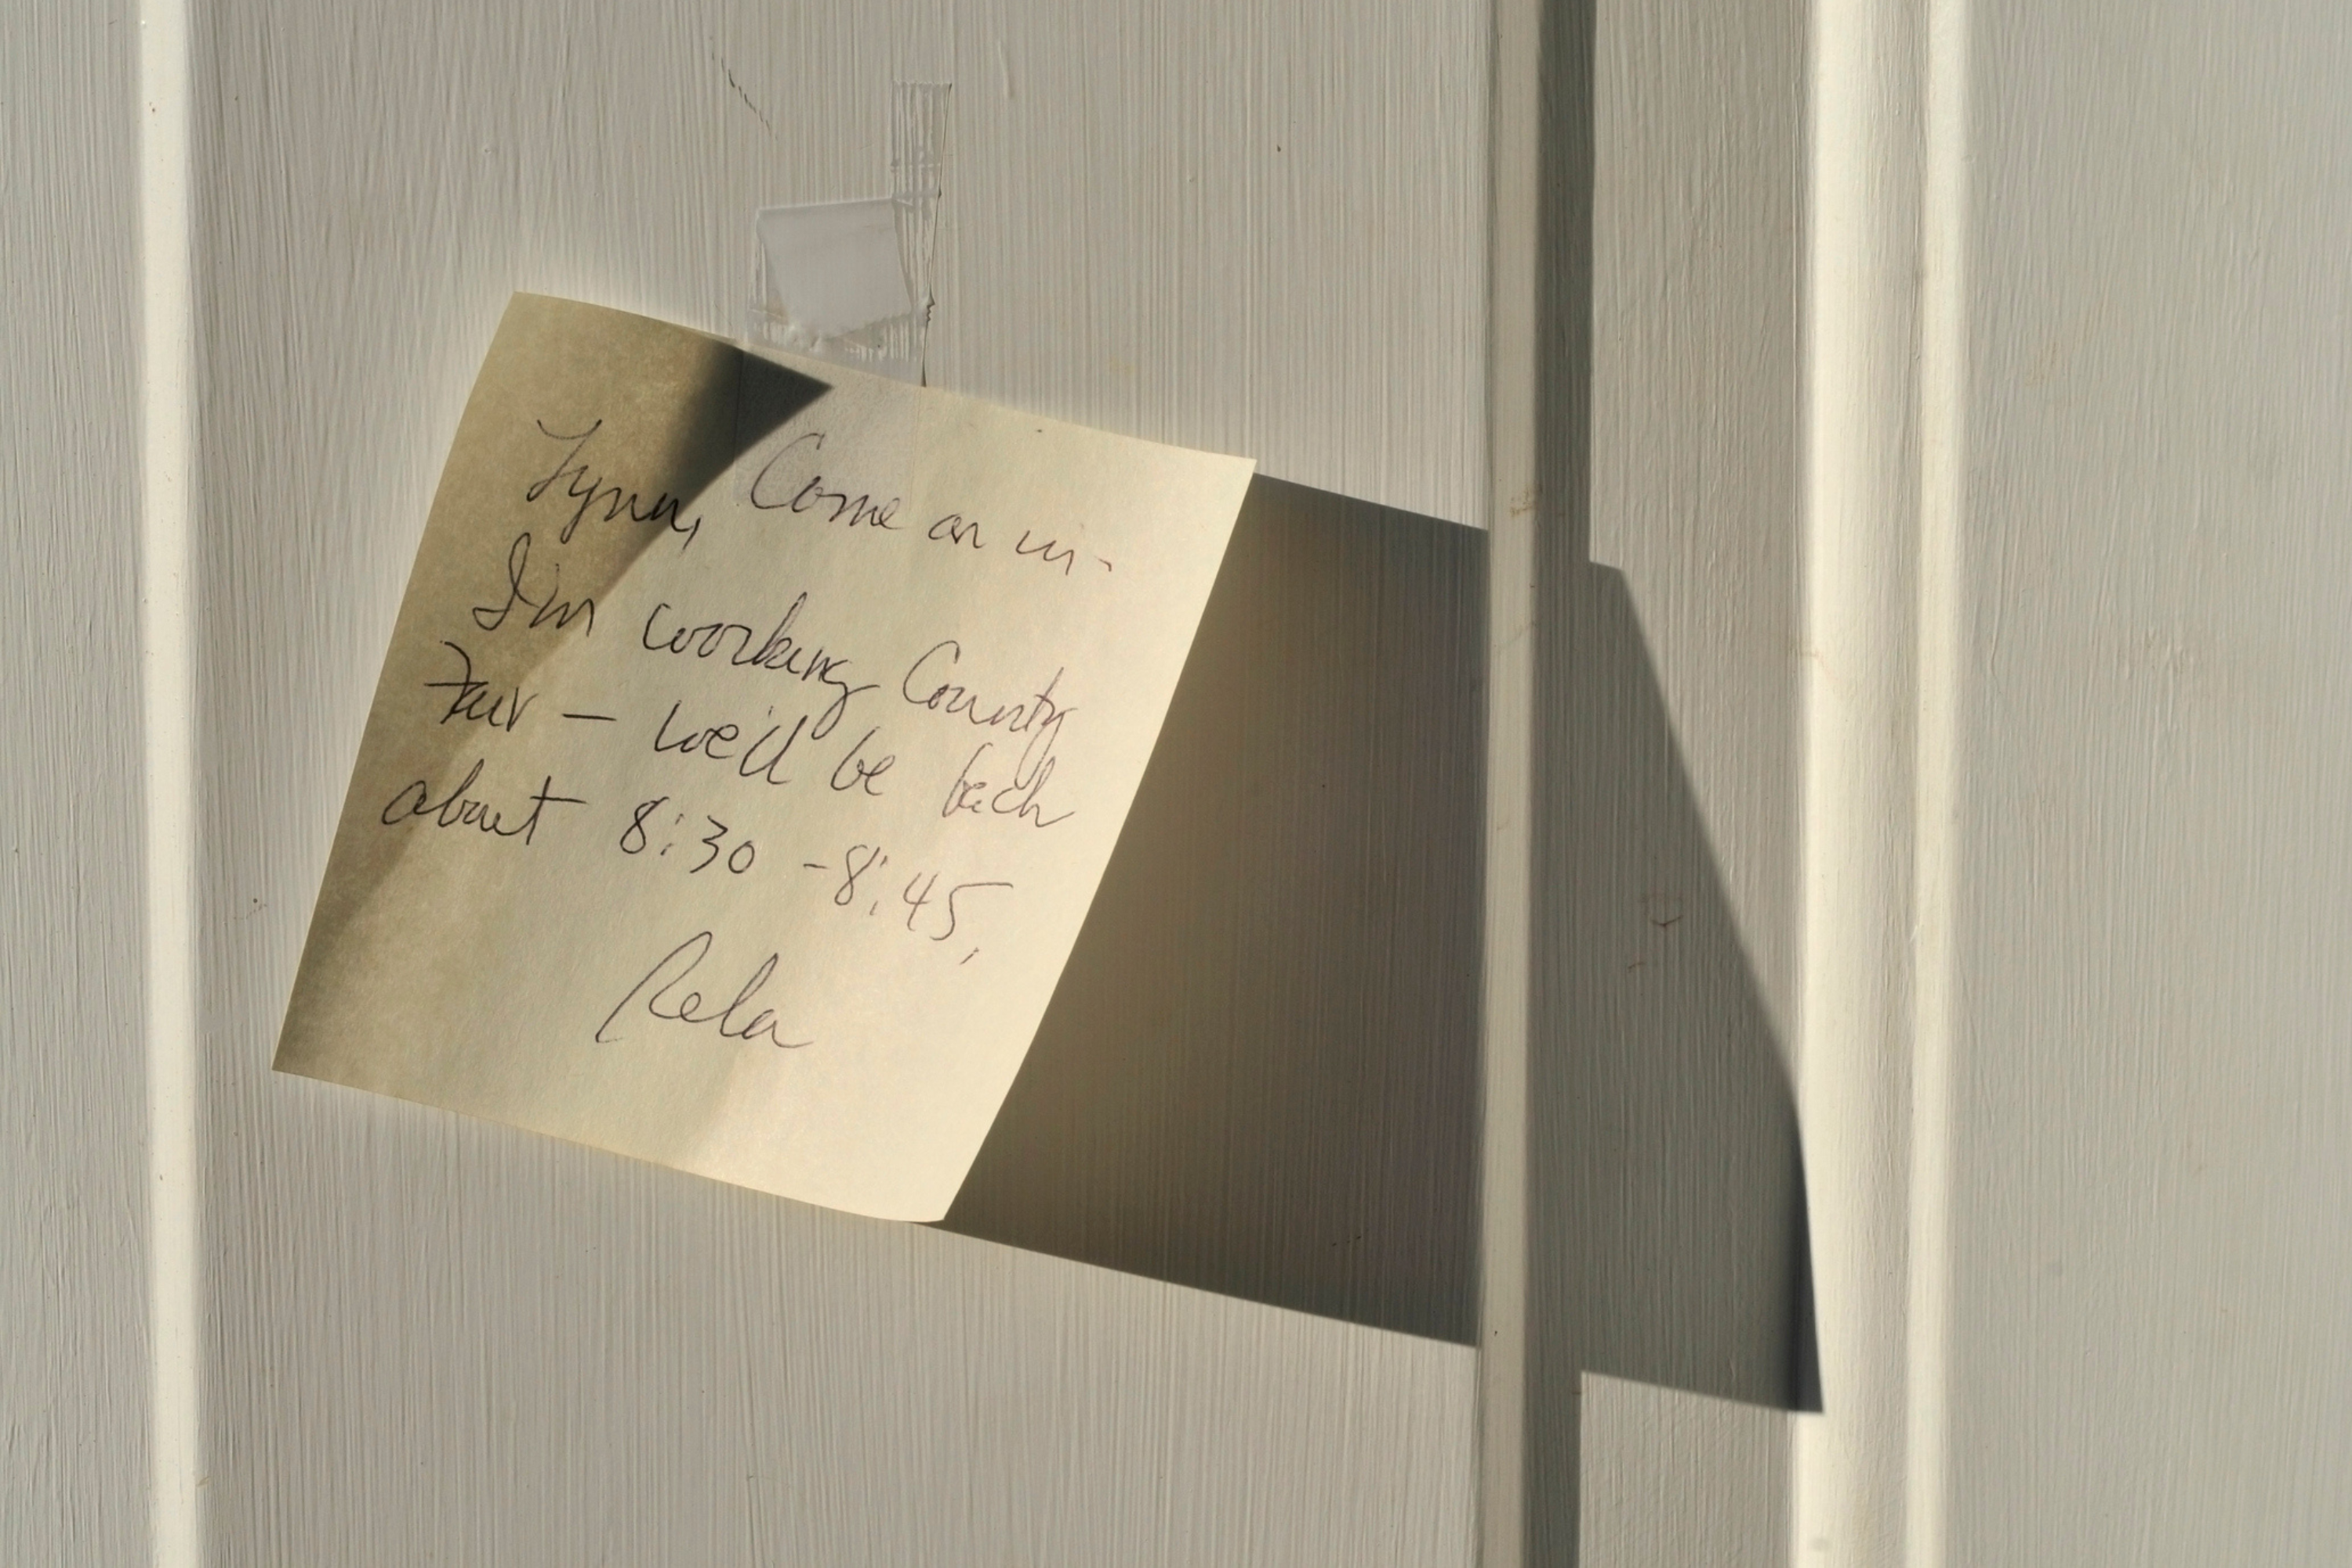 Lynn, Come on in-
I'm working County
Fair - we'll be back
about 8:30 - 8:45.
Rela